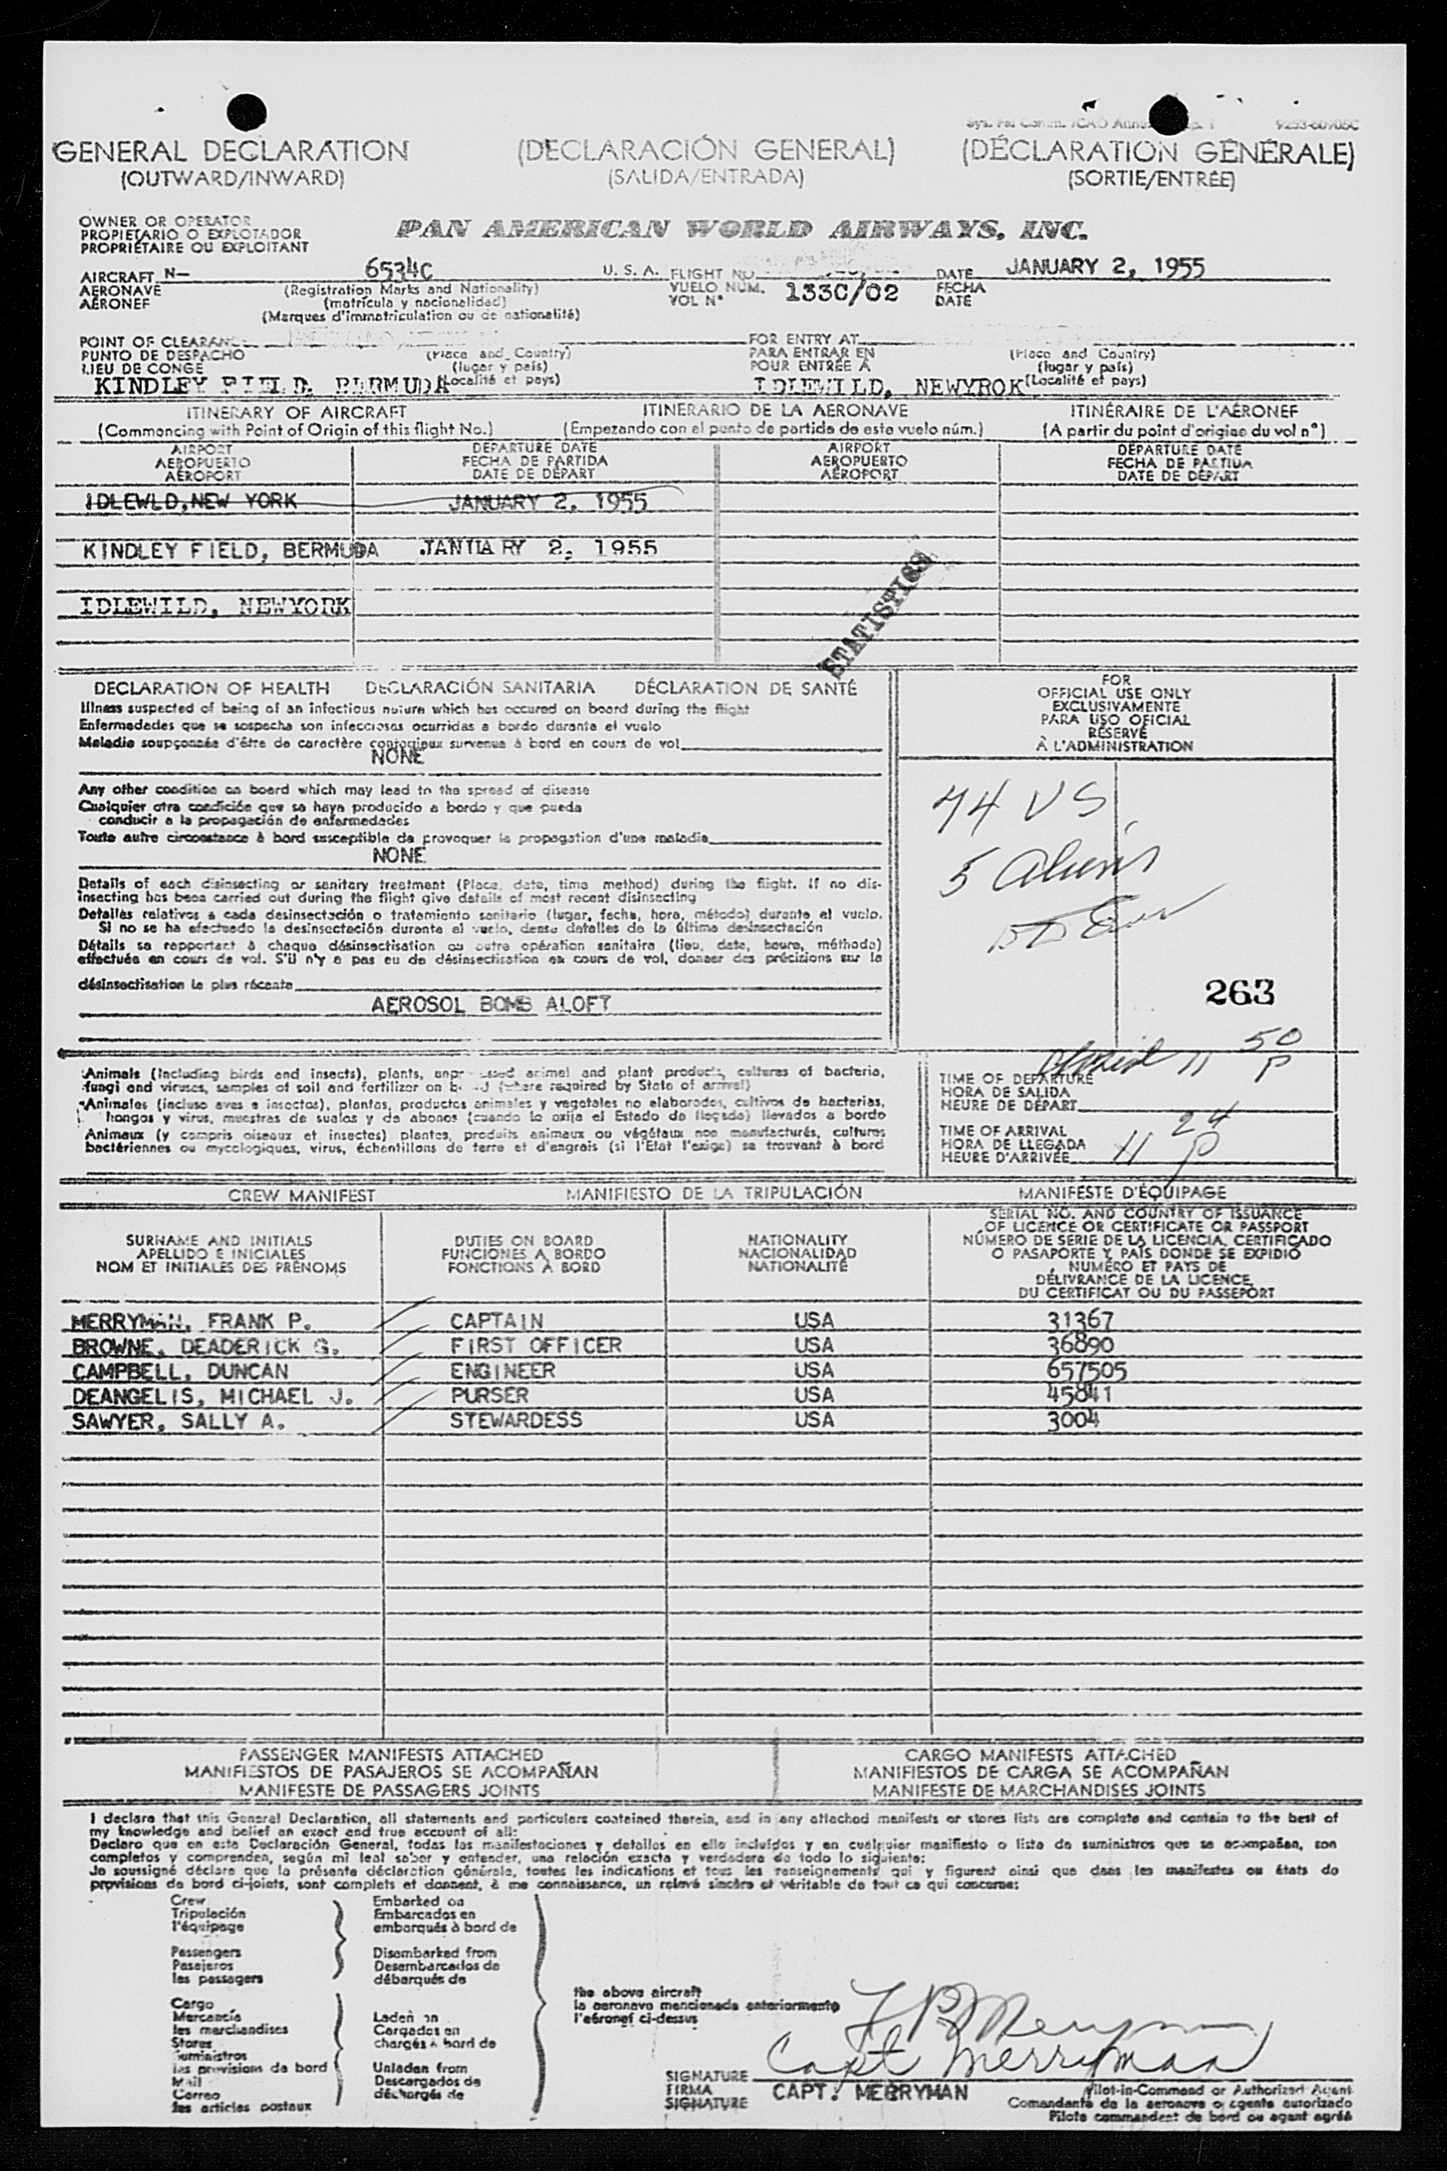 GENERAL DECLARATION (DECLARACIÓN GENERAL) (DÉCLARATION GÉNÉRALE)
(OUTWARD/INWARD) (SALIDA/ENTRADA) (SORTIE/ENTRÉE)
OWNER OR OPERATOR
PROPIETARIO O EXPLOTADOR
PROPRIÉTAIRE OU EXPLOITANT
PAN AMERICAN WORLD AIRWAYS, INC.
AIRCRAFT N- 6534C U. S. A. FLIGHT NO. DATE JANUARY 2, 1955
AERONAVE (Registration Marks and Nationality) VUELO NUM. 1330/02 FECHA
AÉRONEF (matrícula y nacionalidad) VOL N° DATE
(Marques d'immatriculation ou de nationalité)
POINT OF CLEARANCE FOR ENTRY AT
PUNTO DE DESPACHO (Place and Country) PARA ENTRAR EN (Place and Country)
LIEU DE CONGÉ (lugar y país) POUR ENTRÉE À (lugar y país)
KINDLEY FIELD, BERMUDA (Localité et pays) IDLEWILD, NEWYROK (Localité et pays)
ITINERARY OF AIRCRAFT ITINERARIO DE LA AERONAVE ITINÉRAIRE DE L'AÉRONEF
(Commencing with Point of Origin of this flight No.) (Empezando con el punto de partida de este vuelo núm.) (A partir du point d'origine du vol n°)
AIRPORT DEPARTURE DATE AIRPORT DEPARTURE DATE
AEROPUERTO FECHA DE PARTIDA AEROPUERTO FECHA DE PARTIDA
AÉROPORT DATE DE DÉPART AÉROPORT DATE DE DÉPART
IDLEWLD, NEW YORK JANUARY 2, 1955
KINDLEY FIELD, BERMUDA JANUARY 2, 1955
IDLEWILD, NEWYORK
STATISTICS
DECLARATION OF HEALTH DECLARACIÓN SANITARIA DÉCLARATION DE SANTÉ
Illness suspected of being of an infectious nature which has occured on board during the flight
Enfermedades que se sospecha son infecciosas ocurridas a bordo durante el vuelo
Maladie soupçonnée d'être de caractère contagieux survenue à bord en cours de vol
NONE
Any other condition on board which may lead to the spread of disease
Cualquier otra condición que se haya producido a bordo y que pueda
conducir a la propagación de enfermedades
Toute autre circonstance à bord susceptible de provoquer la propagation d'une maladie
NONE
Details of each disinsecting or sanitary treatment (Place, date, time method) during the flight. If no dis-
insecting has been carried out during the flight give details of most recent disinsecting
Detalles relativos a cada desinsectación o tratamiento sanitario (lugar, fecha, hora, método) durante el vuelo.
Si no se ha efectuado la desinsectación durante el vuelo, dense detalles de la última desinsectación
Détails se rapportant à chaque désinsectisation ou autre opération sanitaire (lieu, date, heure, méthode)
effectuée en cours de vol. S'il n'y a pas eu de désinsectisation en cours de vol, donner des précisions sur la
désinsectisation la plus récente
AEROSOL BOMB ALOFT
FOR
OFFICIAL USE ONLY
EXCLUSIVAMENTE
PARA USO OFICIAL
RESERVÉ
À L'ADMINISTRATION
74 US
5 Aliens
263
Animals (including birds and insects), plants, animal and plant products, cultures of bacteria,
fungi and viruses, samples of soil and fertilizer on (where required by State of arrival)
Animales (incluso aves e insectos), plantas, productos animales y vegetales no elaborados, cultivos de bacterias,
hongos y virus, muestras de suelos y de abonos (cuando lo exija el Estado de llegada) llevados a bordo
Animaux (y compris oiseaux et insectes) plantes, produits animaux ou végétaux non manufacturés, cultures
bactériennes ou mycologiques, virus, échantillons de terre et d'engrais (si l'État l'exige) se trouvant à bord
11 50 P
TIME OF DEPARTURE
HORA DE SALIDA
HEURE DE DÉPART
TIME OF ARRIVAL
HORA DE LLEGADA
HEURE D'ARRIVÉE 11 24 P
CREW MANIFEST MANIFIESTO DE LA TRIPULACIÓN MANIFESTE D'ÉQUIPAGE
SURNAME AND INITIALS
APELLIDO E INICIALES
NOM ET INITIALES DES PRÉNOMS
DUTIES ON BOARD
FUNCIONES A BORDO
FONCTIONS À BORD
NATIONALITY
NACIONALIDAD
NATIONALITÉ
SERIAL NO. AND COUNTRY OF ISSUANCE
OF LICENCE OR CERTIFICATE OR PASSPORT
NÚMERO DE SERIE DE LA LICENCIA, CERTIFICADO
O PASAPORTE Y PAÍS DONDE SE EXPIDIÓ
NUMÉRO ET PAYS DE
DÉLIVRANCE DE LA LICENCE,
DU CERTIFICAT OU DU PASSEPORT
MERRYMAN, FRANK P. CAPTAIN USA 31367
BROWNE, DEADERICK G. FIRST OFFICER USA 36890
CAMPBELL, DUNCAN ENGINEER USA 657505
DEANGELIS, MICHAEL J. PURSER USA 45841
SAWYER, SALLY A. STEWARDESS USA 3004
PASSENGER MANIFESTS ATTACHED CARGO MANIFESTS ATTACHED
MANIFIESTOS DE PASAJEROS SE ACOMPAÑAN MANIFIESTOS DE CARGA SE ACOMPAÑAN
MANIFESTE DE PASSAGERS JOINTS MANIFESTE DE MARCHANDISES JOINTS
I declare that this General Declaration, all statements and particulars contained therein, and in any attached manifests or stores lists are complete and contain to the best of
my knowledge and belief an exact and true account of all:
Declaro que en esta Declaración General, todas las manifestaciones y detalles en ella incluídos y en cualquier manifiesto o lista de suministros que se acompañan, son
completos y comprenden, según mi leal saber y entender, una relación exacta y verdadera de todo lo siguiente:
Je soussigné déclare que la présente déclaration générale, toutes les indications et tous les renseignements qui y figurent ainsi que dans les manifestes ou états de
provisions de bord ci-joints, sont complets et donnent, à ma connaissance, un relevé sincère et véritable de tout ce qui concerne:
Crew Embarked on
Tripulación Embarcados en
l'équipage embarqués à bord de
Passengers Disembarked from
Pasajeros Desembarcados de
les passagers débarqués de
the above aircraft
la aeronave mencionada anteriormente
l'aéronef ci-dessus
Cargo
Mercancía Laden on
les marchandises Cargados en
Stores chargés à bord de
Suministros
les provisions de bord Unladen from
Mail Descargados de
Correo déchargés de
les articles postaux
F P Merryman
Capt Merryman
SIGNATURE
FIRMA CAPT. MERRYMAN
SIGNATURE
Pilot-in-Command or Authorized Agent
Comandante de la aeronave o agente autorizado
Pilote commandant de bord ou agent agréé